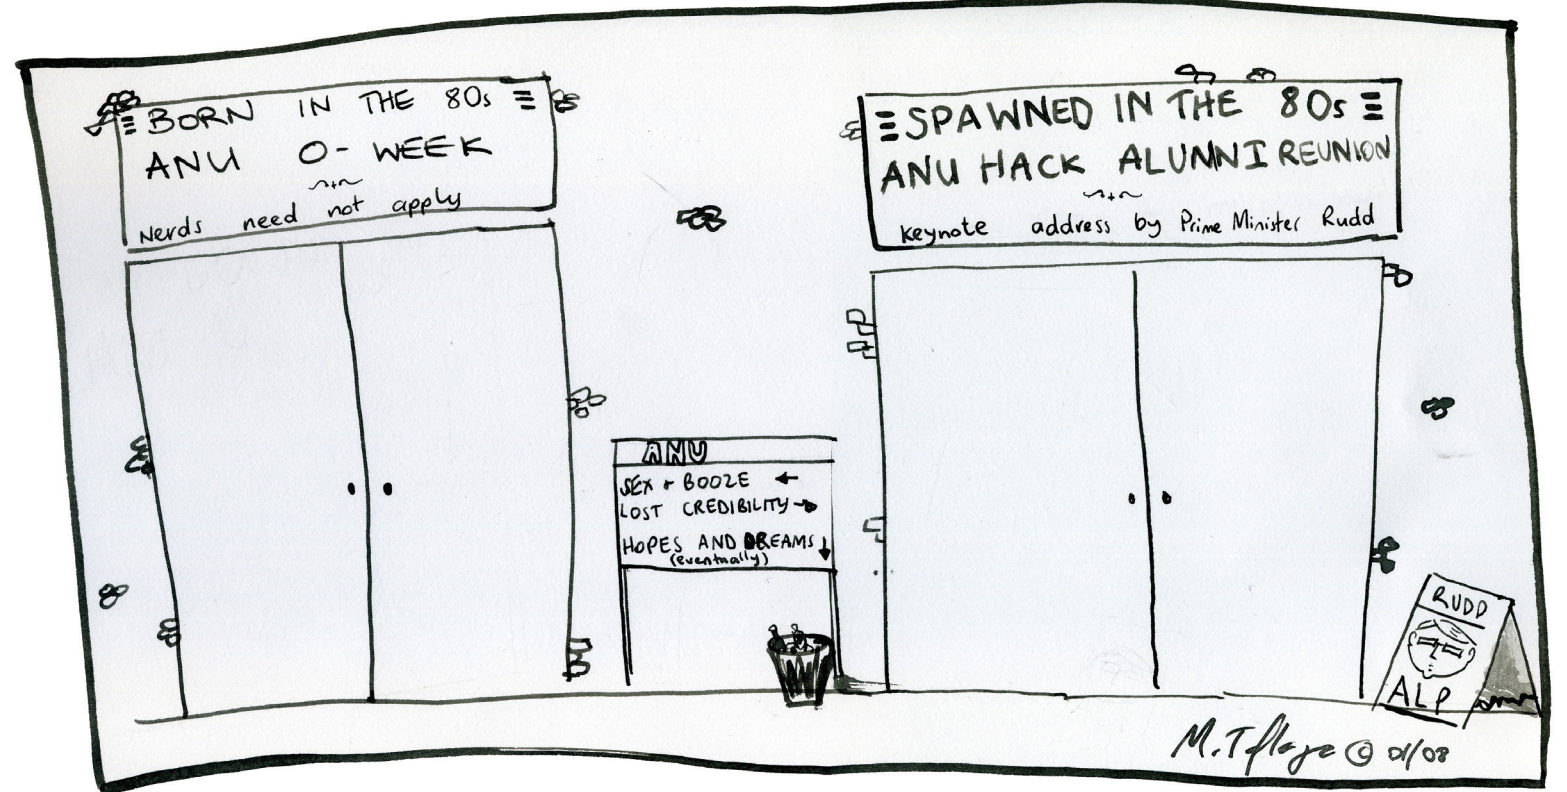 BORN IN THE 80s
ANU O-WEEK
Nerds need not apply
SPAWNED IN THE 80s
ANU HACK ALUMNI REUNION
keynote address by Prime Minister Rudd
ANU
SEX + BOOZE ←
LOST CREDIBILITY →
HOPES AND DREAMS ↓
(eventually)
RUDD
ALP
© 01/08